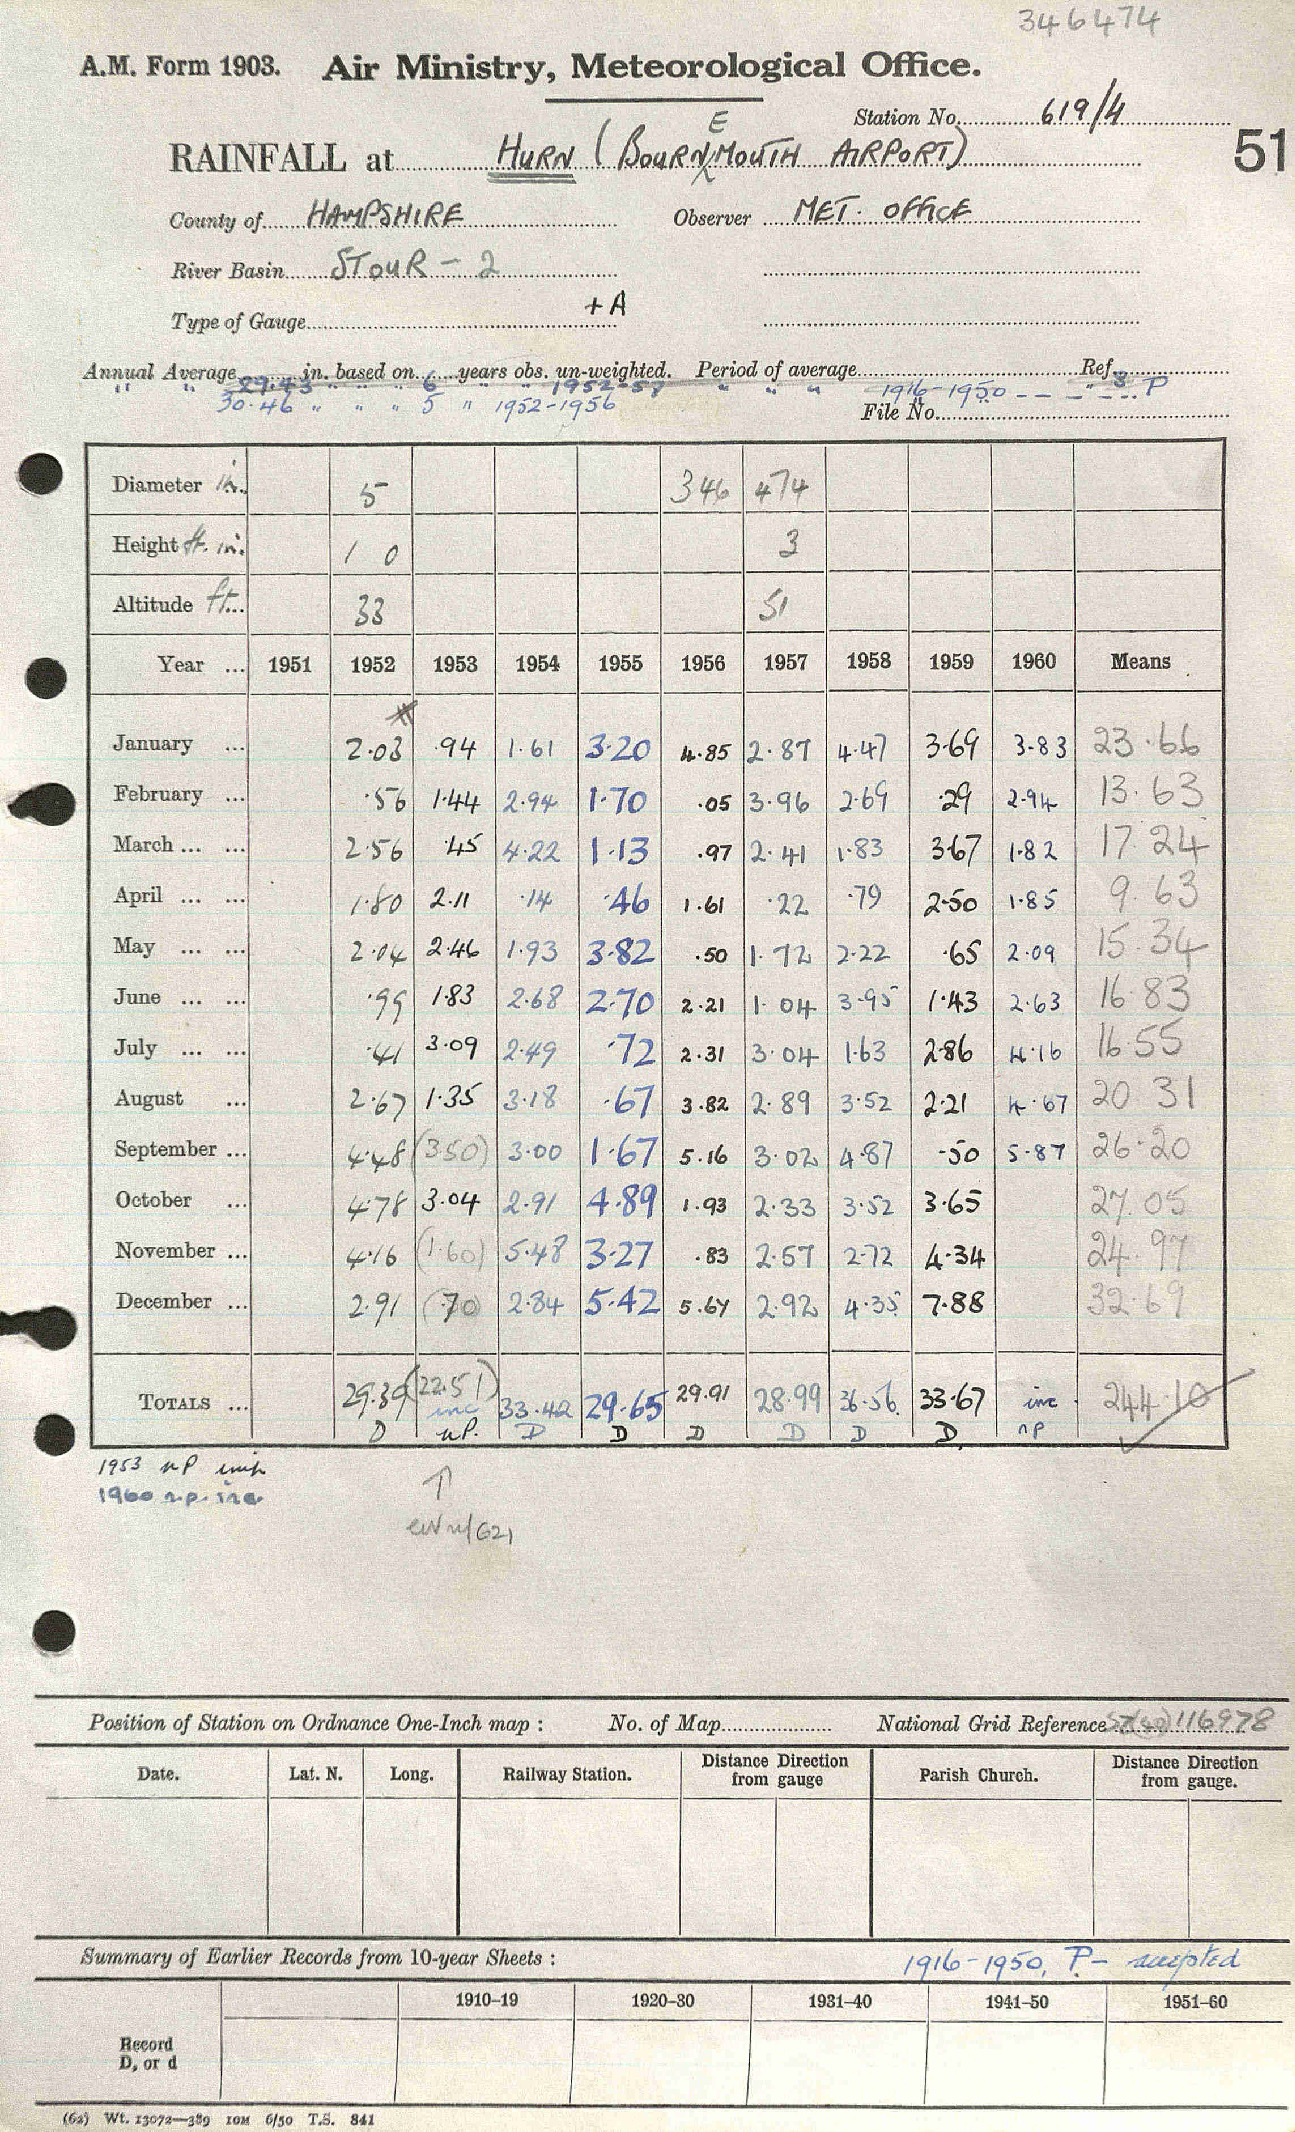 346474
A.M. Form 1903. Air Ministry, Meteorological Office.
Station No. 619/4
51
RAINFALL at HURN (BOURNEMOUTH AIRPORT)
County of HAMPSHIRE Observer MET. OFFICE
River Basin STOUR - 2
Type of Gauge + A
Annual Average 29.43 in. based on 6 years obs. un-weighted. Period of average Ref.
" " 1952-57 " " " 1916-1950 P
30.46 " " " 5 " 1952-1956 File No.
Diameter in. 5 346 474
Height ft. in. 1 0 3
Altitude ft. 33 51
Year ... 1951 1952 1953 1954 1955 1956 1957 1958 1959 1960 Means
January ... 2.03 .94 1.61 3.20 4.85 2.87 4.47 3.69 3.83 23.66
February ... .56 1.44 2.94 1.70 .05 3.96 2.69 .29 2.94 13.63
March ... ... 2.56 .45 4.22 1.13 .97 2.41 1.83 3.67 1.82 17.24
April ... ... 1.80 2.11 .14 .46 1.61 .22 .79 2.50 1.85 9.63
May ... ... 2.04 2.46 1.93 3.82 .50 1.72 2.22 .65 2.09 15.34
June ... ... .99 1.83 2.68 2.70 2.21 1.04 3.95 1.43 2.63 16.83
July ... ... .41 3.09 2.49 .72 2.31 3.04 1.63 2.86 4.16 16.55
August ... 2.67 1.35 3.18 .67 3.82 2.89 3.52 2.21 4.67 20 31
September ... 4.48 (3.50) 3.00 1.67 5.16 3.02 4.87 .50 5.87 26.20
October ... 4.78 3.04 2.91 4.89 1.93 2.33 3.52 3.65 27.05
November ... 4.16 (1.60) 5.48 3.27 .83 2.57 2.72 4.34 24.97
December ... 2.91 (.70) 2.84 5.42 5.67 2.92 4.35 7.88 32.69
TOTALS ... 29.39 (22.51) 33.42 29.65 29.91 28.99 36.56 33.67 inc. 244.10
D inc nP. D D D D D D. nP
1953 nP
1960 n.p. inc.
Position of Station on Ordnance One-Inch map : No. of Map National Grid Reference 116978
Date. Lat. N. Long. Railway Station. Distance Direction from gauge Parish Church. Distance Direction from gauge.
Summary of Earlier Records from 10-year Sheets : 1916-1950, P- accepted
1910-19 1920-30 1931-40 1941-50 1951-60
Record
D, or d
(62) Wt. 13072-389 10M 6/50 T.S. 841